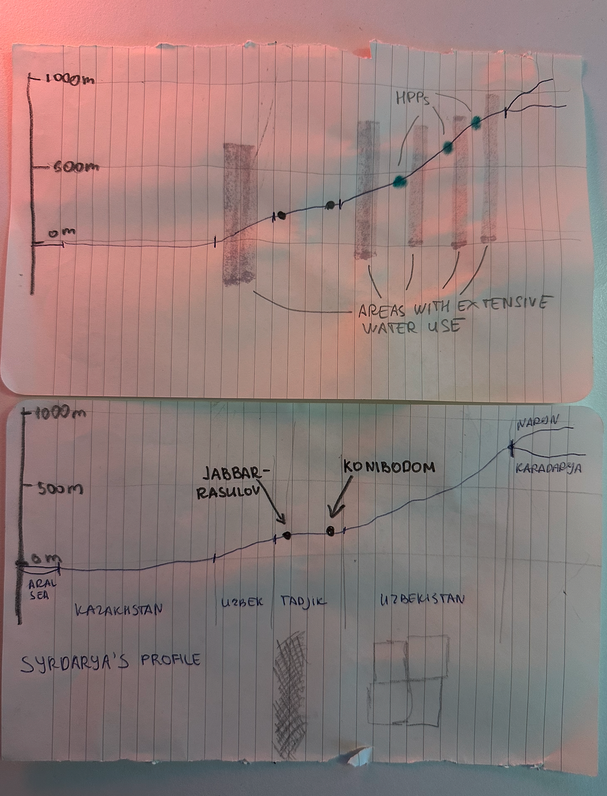 1000m
HPPs
500m
0m
AREAS WITH EXTENSIVE
WATER USE
1000m
NARIN
KARADARYA
500m
JABBAR-
RASULOV
KONIBODOM
0m
ARAL
SEA
KAZAKHSTAN
UZBEK
TADJIK
UZBEKISTAN
SYRDARYA'S PROFILE